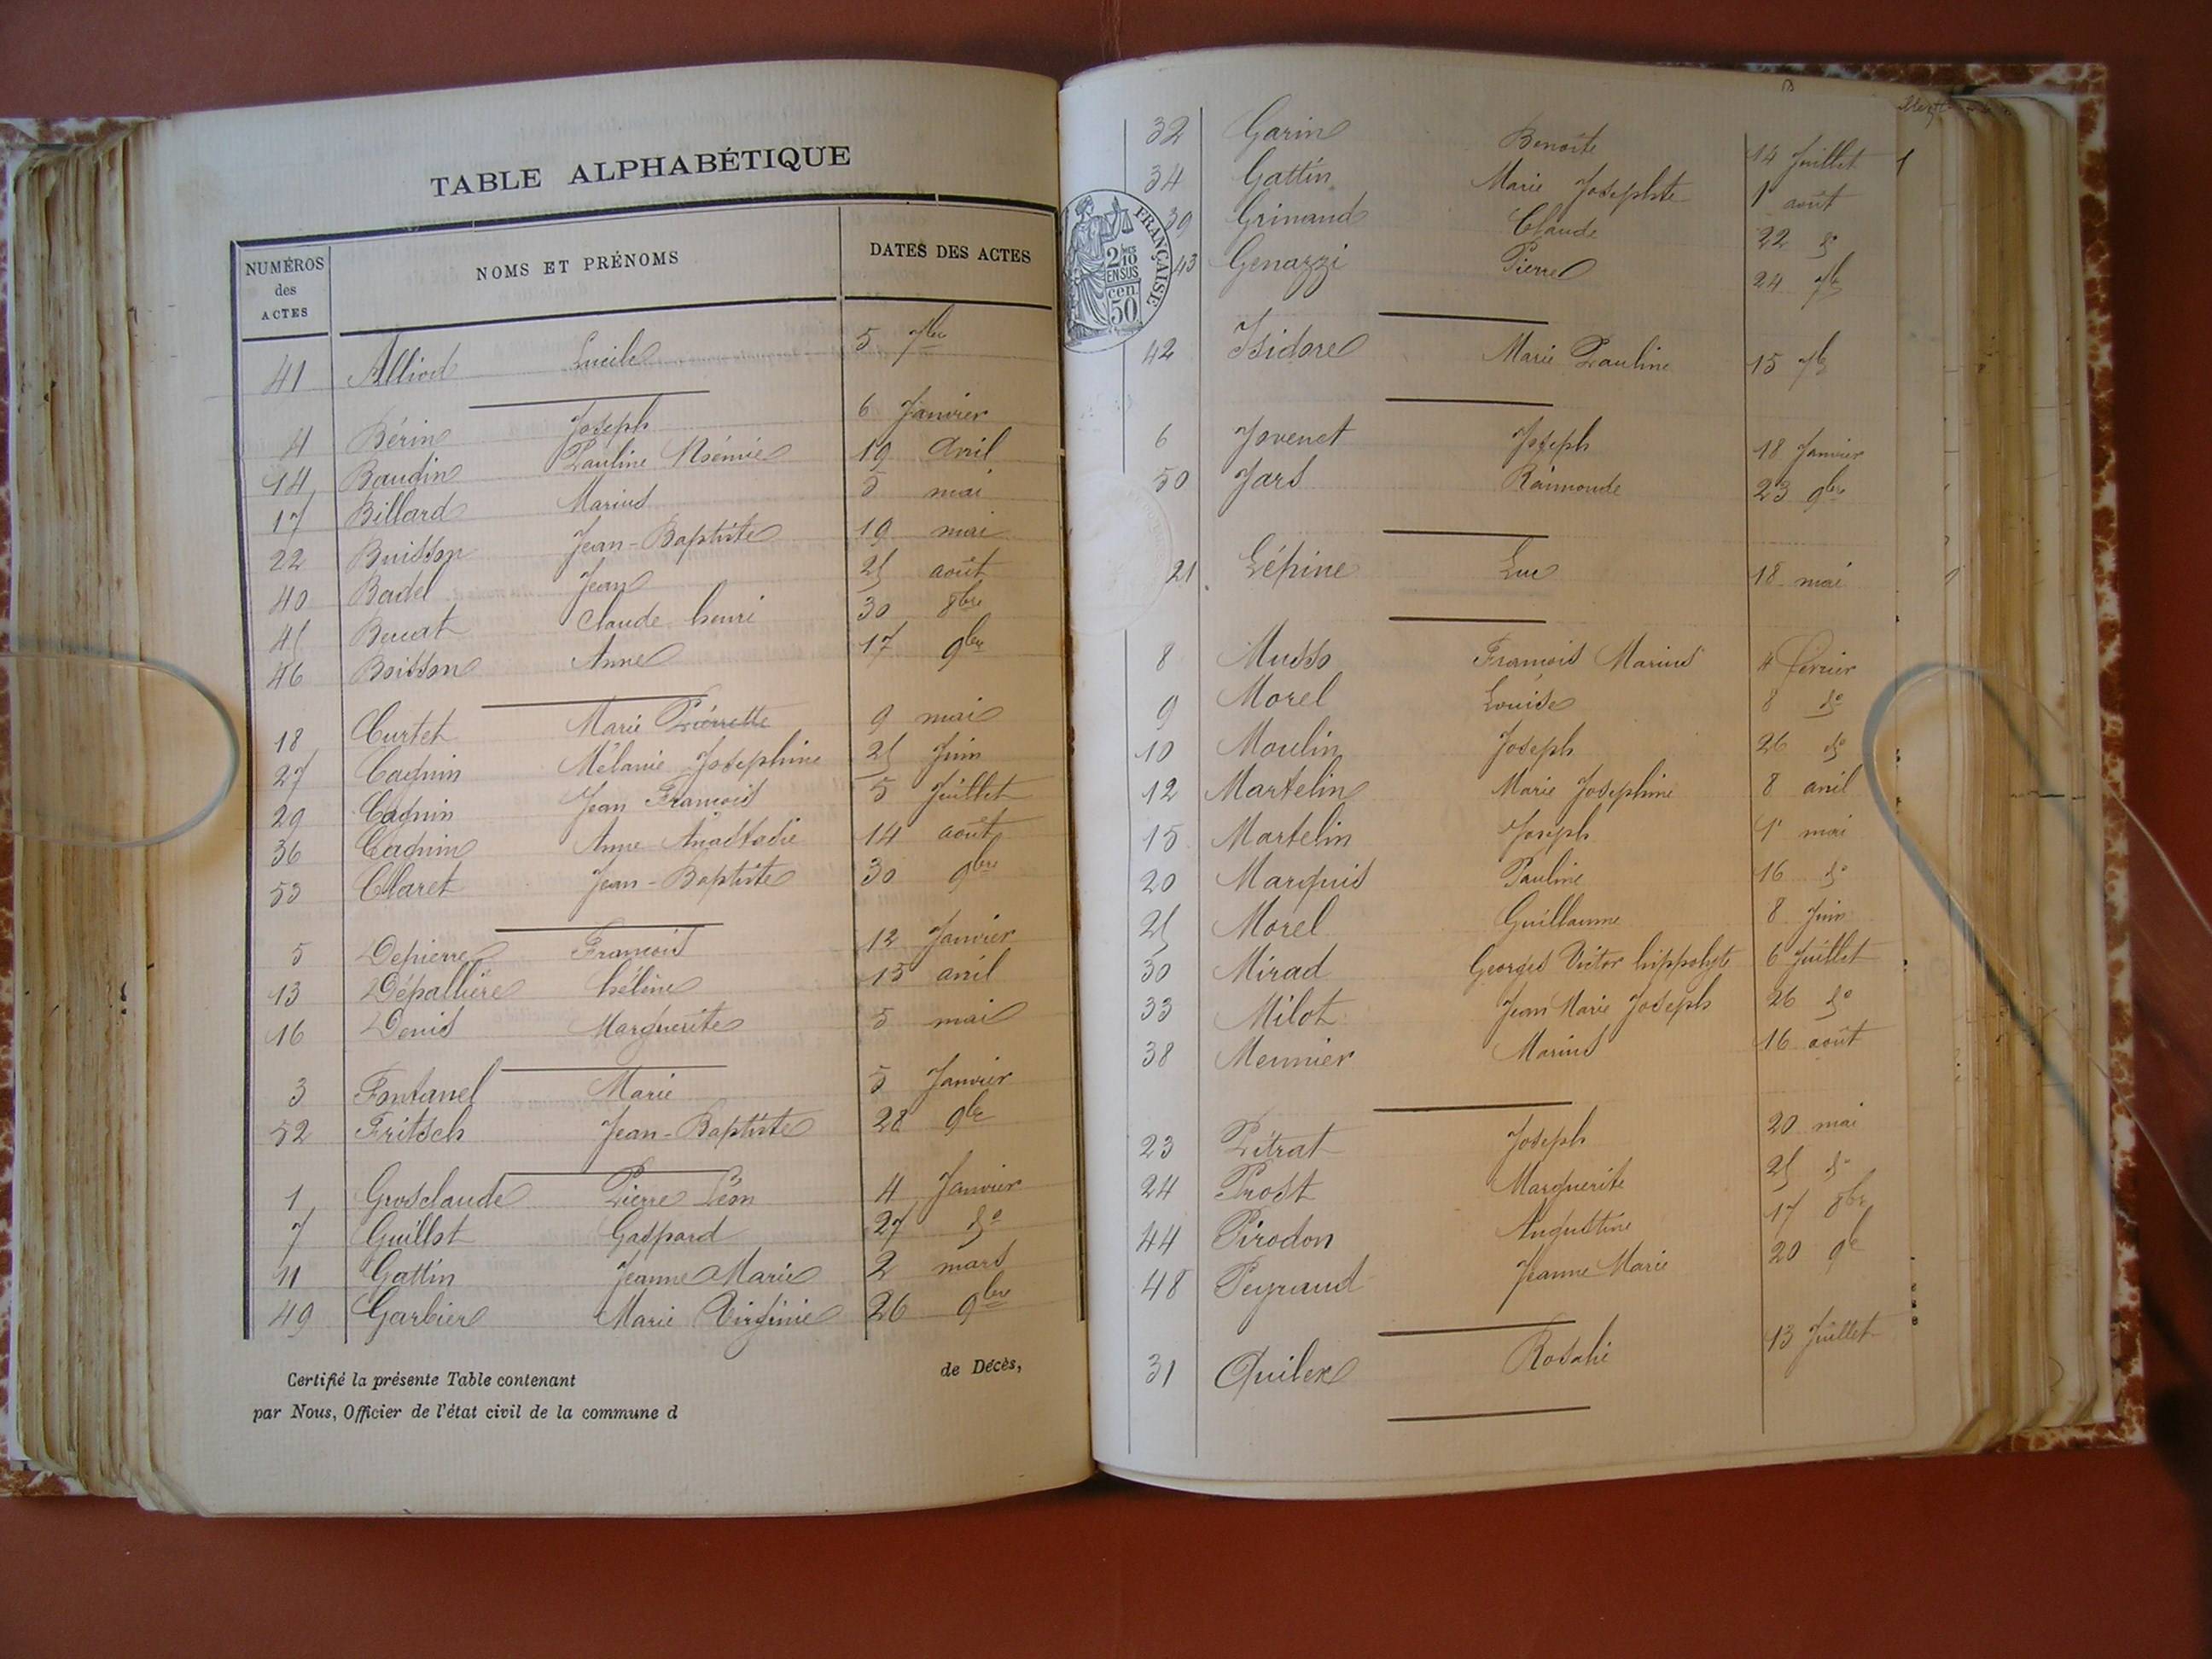 TABLE ALPHABÉTIQUE
NUMÉROS des ACTES NOMS ET PRÉNOMS DATES DES ACTES
41 Alliod Lucile 5 7bre
4 Bérin Joseph 6 Janvier
14 Baudin Pauline Noémie 19 Avril
17 Billard Marius 5 mai
22 Buisson Jean-Baptiste 19 mai
40 Badel Jean 25 août
45 Claude henri 30 8bre
46 Boisson Anne 17 9bre
18 Curtet Marie Pierrette 9 mai
27 Cagnin Mélanie Josephine 25 Juin
29 Cagnin Jean François 5 Juillet
36 Cagnin Anne Anastasie 14 août
53 Claret Jean-Baptiste 30 9bre
5 Depierre François 12 Janvier
13 Dépallière hélène 15 avril
16 Denis Marguerite 5 mai
3 Fontanel Marie 5 Janvier
52 Fritsch Jean-Baptiste 28 9bre
1 Grosclaude Pierre Léon 4 Janvier
7 Guillot Gaspard 27 do
11 Gattin Jeanne Marie 2 mars
49 Garbier Marie Virginie 26 9bre
Certifié la présente Table contenant de Décès,
par Nous, Officier de l'état civil de la commune d
32 Garin Benoîte 14 Juillet
34 Gattin Marie Josephte 1r août
39 Grinand Claude 22 do
43 Genazzi Pierre 24 7b
FRANÇAISE
2/10 EN SUS
50 cen.
42 Isidore Marie Pauline 15 7b
6 Jovenet Joseph 18 Janvier
50 Jars Raimonde 23 9bre
21 Lépine Luc 18 mai
8 Musso François Marius 4 février
9 Morel Louise 8 do
10 Moulin Joseph 26 do
12 Martelin Marie Josephine 8 avril
15 Martelin Joseph 1r mai
20 Marquis Pauline 16 do
25 Morel Guillaume 8 Juin
30 Mirad Georges Victor hippolyte 6 Juillet
33 Milot Jean Marie Joseph 26 do
38 Meunier Marius 16 août
23 Pétrat Joseph 20 mai
24 Prost Marguerite 25 do
44 Pirodon Augustine 17 8bre
48 Peyraud Jeanne Marie 20 9b
31 Quiler Rosalie 13 Juillet